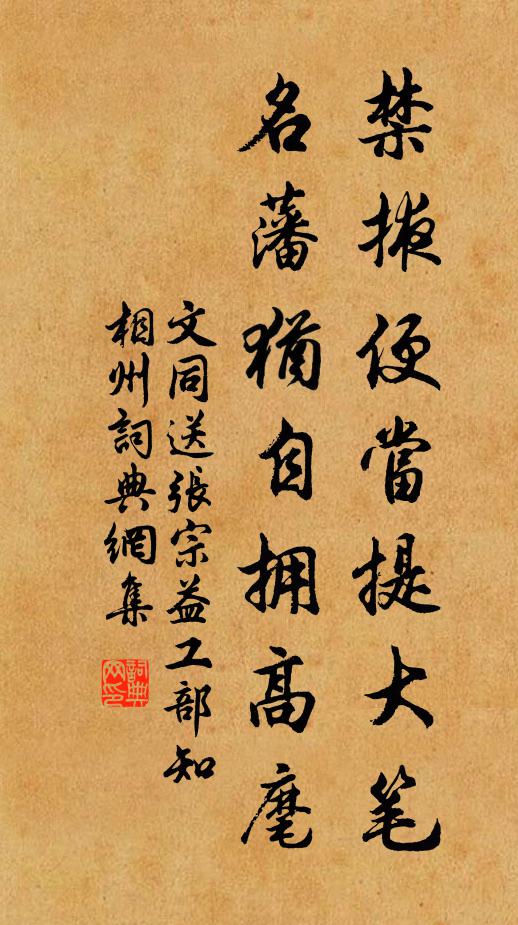 禁掖便當提大笔
名藩猶自拥高麾
文同送張宗益工部知
相州詞典網集
詞典网印